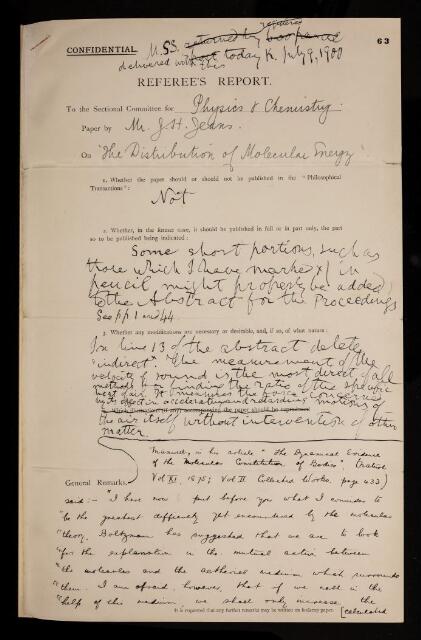 63
registered
CONFIDENTIAL. M.S.S. returned by book parcel
delivered with this post today K. July 9, 1900
REFEREE'S REPORT.
To the Sectional Committee for Physics & Chemistry.
Paper by Mr. J. H. Jeans.
On "The Distribution of Molecular Energy"
1. Whether the paper should or should not be published in the "Philosophical
Transactions":
Not
2. Whether, in the former case, it should be published in full or in part only, the part
so to be published being indicated:
Some short portions, such as
those which I have marked X in
pencil might properly be added
to the Abstract for the Proceedings
See pp 1 and 44.
3. Whether any modifications are necessary or desirable, and, if so, of what nature:
In line 13 of the abstract delete
"indirect". The measurement of the
velocity of sound is the most direct of all
methods for finding the ratio of the specific
heat of air. It measures the force concerned
by its effect in accelerating and retarding motions of
the air itself without intervention of other
matter.
Maxwell, in his article "The Dynamical Evidence
of the Molecular Constitution of Bodies" (Nature
General Remarks. Vol XI. 1875; Vol II Collected Works. page 433)
said:- "I have now put before you what I consider to
"be the greatest difficulty yet encountered by the molecular
"theory. Boltzmann has suggested that we are to look
"for the explanation in the mutual action between
"the molecules and the aetherial medium which surrounds
"them. I am afraid, however, that if we call in the
"help of this medium, we shall only increase the
It is requested that any further remarks may be written on foolscap paper. [calculated